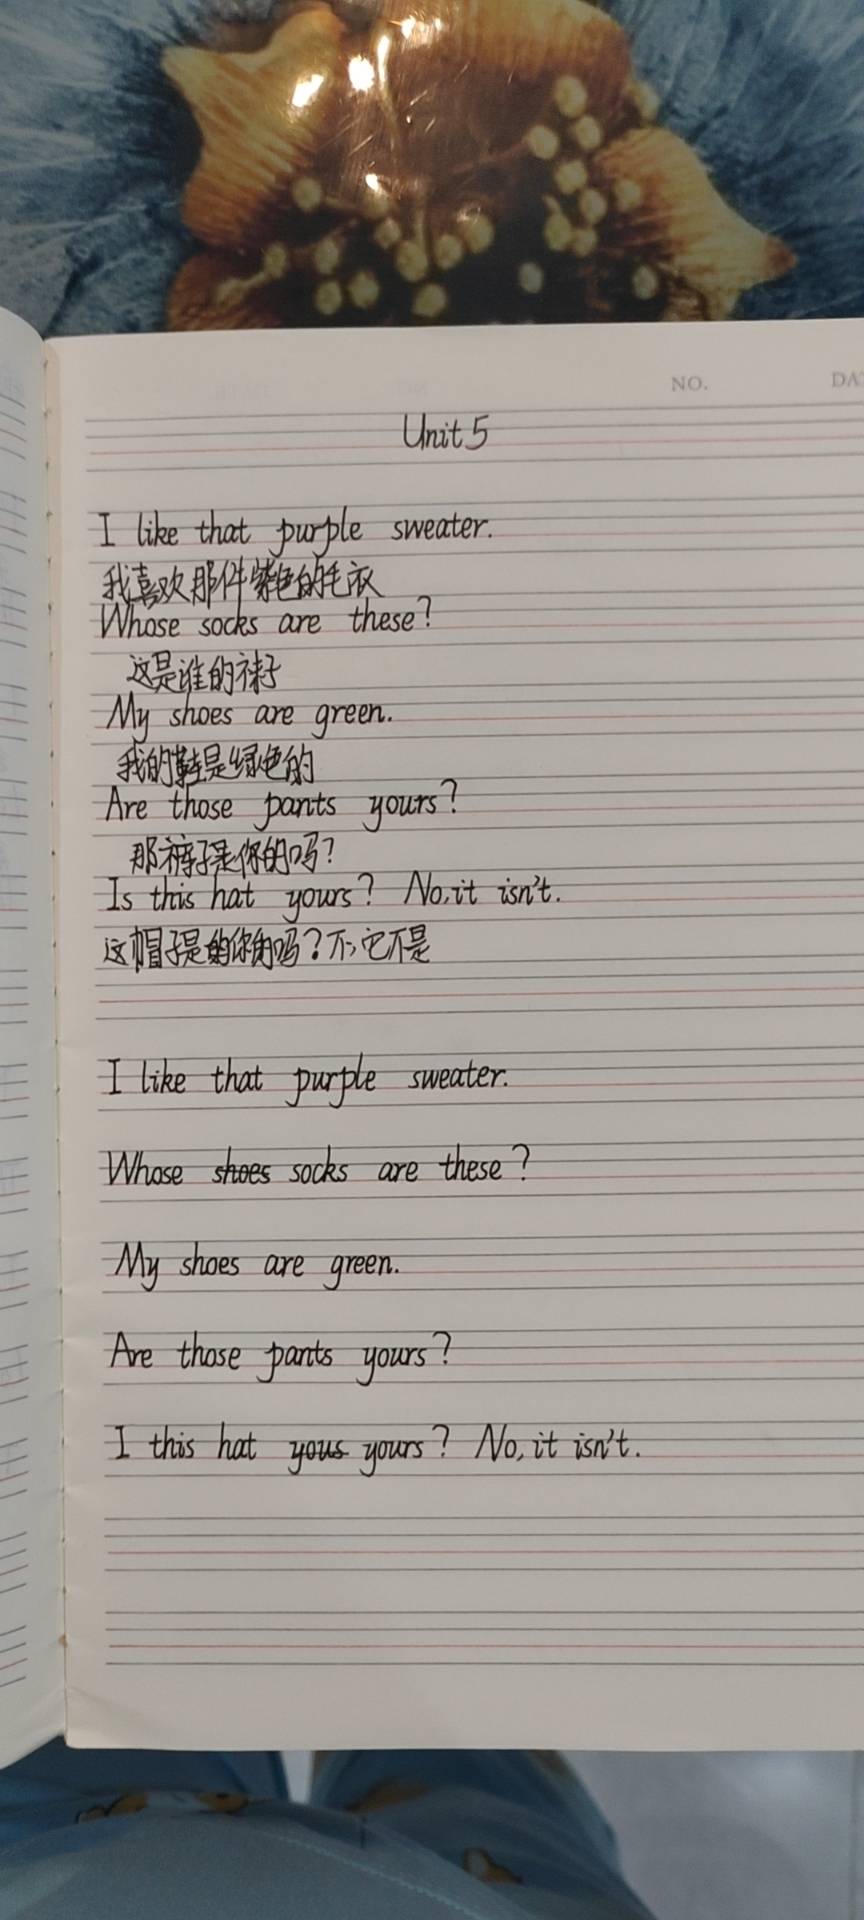 NO.
DA
Unit 5
I like that purple sweater.
我喜欢那件紫色的毛衣
Whose socks are these?
这是谁的袜子
My shoes are green.
我的鞋是绿色的
Are those pants yours?
那裤子是你的吗?
Is this hat yours? No, it isn't.
这帽子是你的吗?不,它不是
I like that purple sweater.
Whose shoes socks are these?
My shoes are green.
Are those pants yours?
I this hat yous yours? No, it isn't.